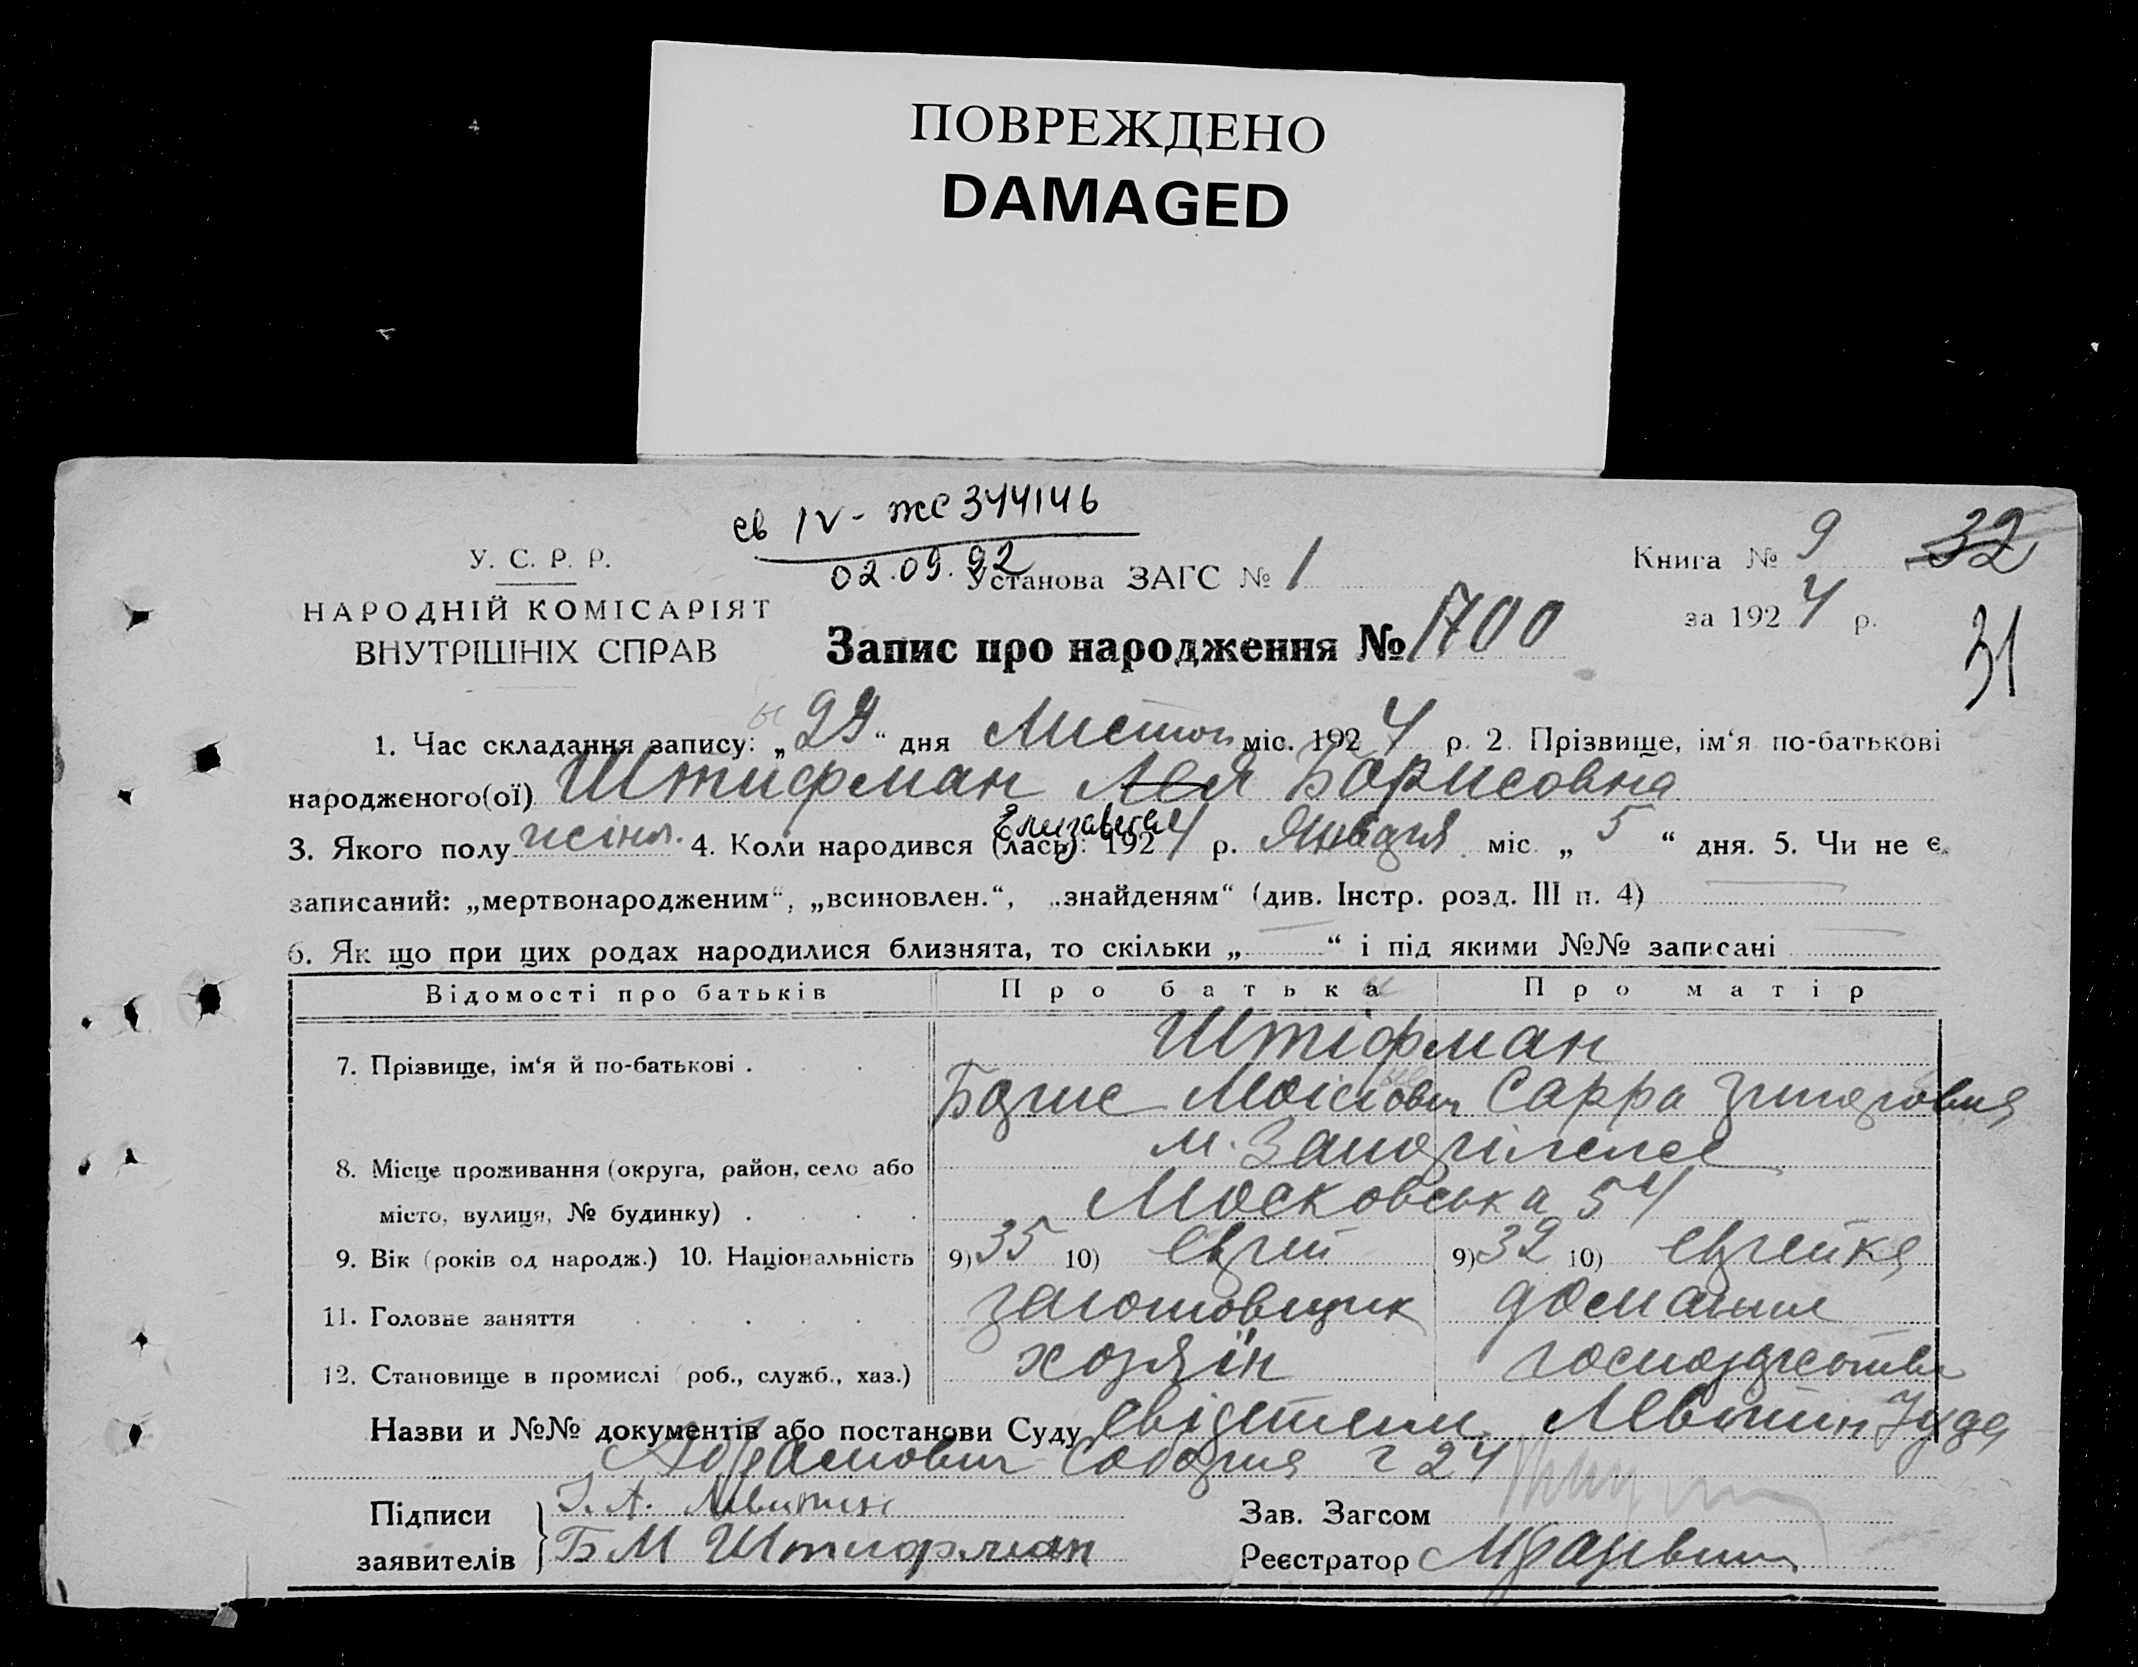 ПОВРЕЖДЕНО
DAMAGED
св IV - же 344146
02.09.92
У. С. Р. Р.
НАРОДНІЙ КОМІСАРІЯТ
ВНУТРІШНІХ СПРАВ
Установа ЗАГС № 1
Книга № 9 32
за 1924 р.
31
Запис про народження № 1700
1. Час складання запису: „29“ дня Листоп міс. 1924 р. 2. Прізвище, ім‘я по-батькові
народженого(ої) Штифман Лея Борисовна
Елизавета
3. Якого полу жіноч. 4. Коли народився (лась): 1924 р. Января міс. „5“ дня. 5. Чи не є
записаний: „мертвонародженим“, „всиновлен.“, „знайденям“ (див. Інстр. розд. III п. 4)
6. Як що при цих родах народилися близнята, то скільки „ “ і під якими №№ записані
Відомості про батьків Про батька Про матір
Штіфман
7. Прізвище, ім‘я й по-батькові . Борис Сарра
м. Запоріжжє
8. Місце проживання (округа, район, село або
місто, вулиця, № будинку) . Московська 54
9. Вік (років од народж.) 10. Національність 9) 35 10) Єврей 9) 32 10) Єврейка
11. Головне заняття заготовщик домашнє
12. Становище в промислі (роб., служб., хаз.) хозяїн господарство
Назви и №№ документів або постанови Суду Левитин Іуда
Абрамович Соборна 24
Підписи
заявителів
І. А. Левитин
БМ Штифман
Зав. Загсом
Реєстратор